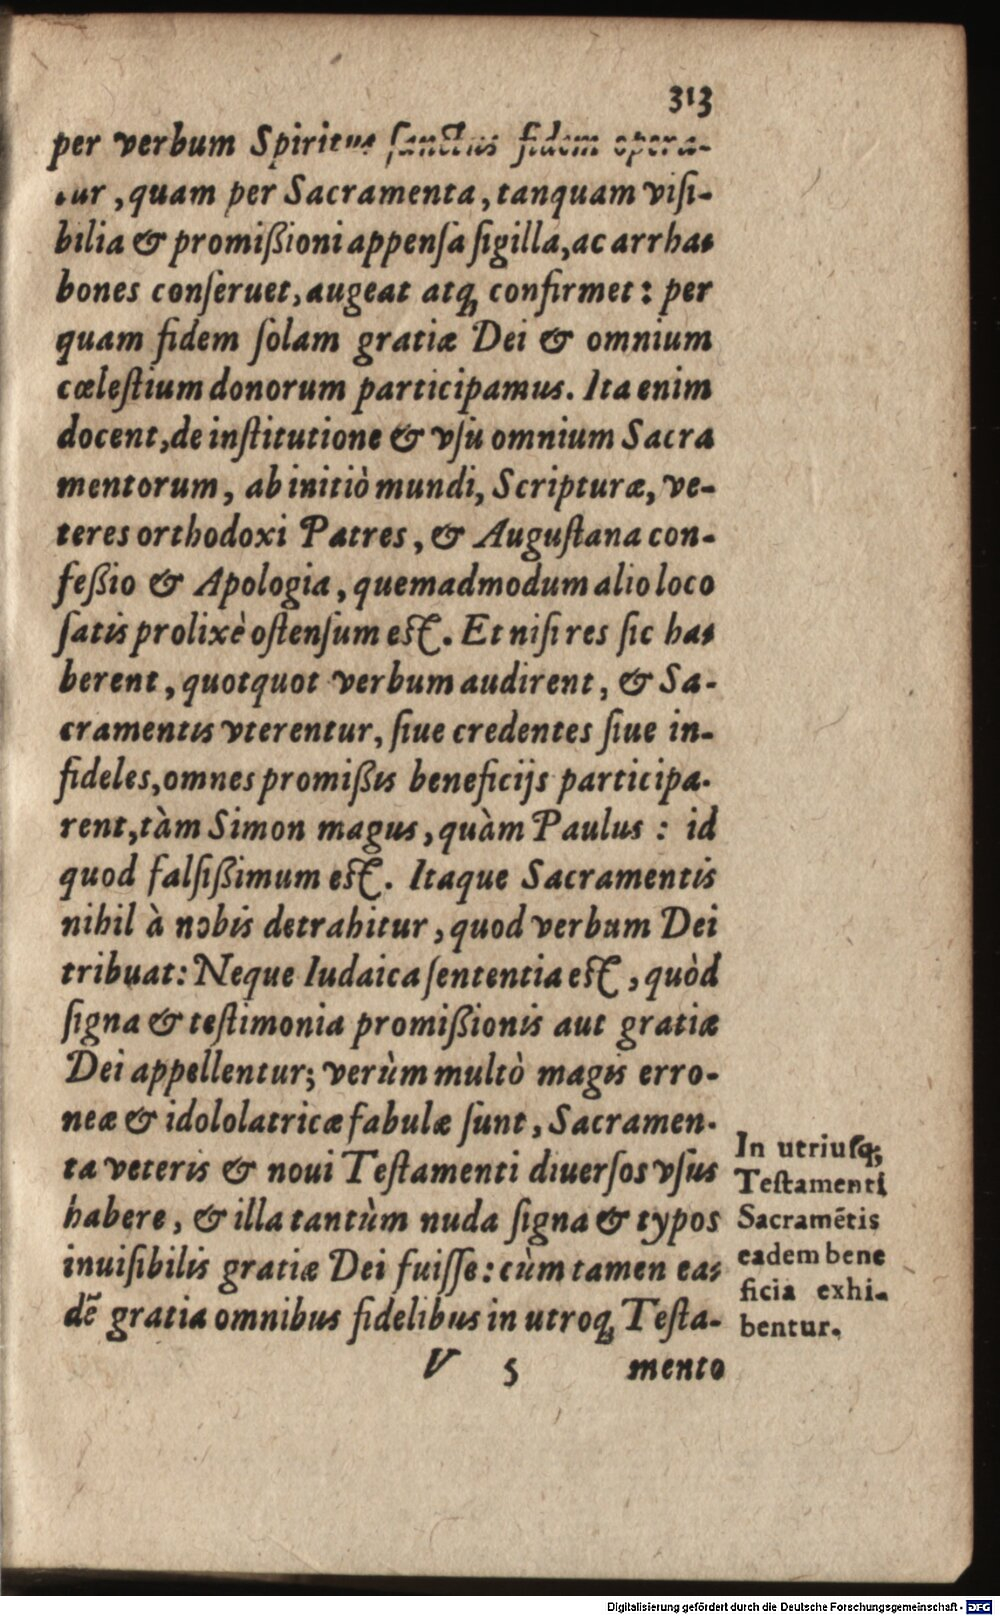 313
per verbum Spiritus ſanctus fidem opera-
tur, quam per Sacramenta, tanquam viſi-
bilia & promißioni appenſa ſigilla, ac arrha-
bones conſeruet, augeat atq; confirmet: per
quam fidem ſolam gratiæ Dei & omnium
cœleſtium donorum participamus. Ita enim
docent, de inſtitutione & vſu omnium Sacra
mentorum, ab initiò mundi, Scripturæ, ve-
teres orthodoxi Patres, & Auguſtana con-
feßio & Apologia, quemadmodum alio loco
ſatis prolixè oſtenſum eſt. Et niſi res ſic ha-
berent, quotquot verbum audirent, & Sa-
cramentis vterentur, ſiue credentes ſiue in-
fideles, omnes promißis beneficijs participa-
rent, tàm Simon magus, quàm Paulus: id
quod falſißimum eſt. Itaque Sacramentis
nihil à nobis detrahitur, quod verbum Dei
tribuat: Neque Iudaica ſententia eſt, quòd
ſigna & teſtimonia promißionis aut gratiæ
Dei appellentur; verùm multò magis erro-
neæ & idololatricæ fabulæ ſunt, Sacramen-
ta veteris & noui Teſtamenti diuerſos vſus
habere, & illa tantùm nuda ſigna & typos
inuiſibilis gratiæ Dei fuiſſe: cùm tamen ea-
dē gratia omnibus fidelibus in utroq; Teſta-
V 5 mento
In utriuſq;
Teſtamenti
Sacramētis
eadem bene
ficia exhi-
bentur.
Digitalisierung gefördert durch die Deutsche Forschungsgemeinschaft - DFG